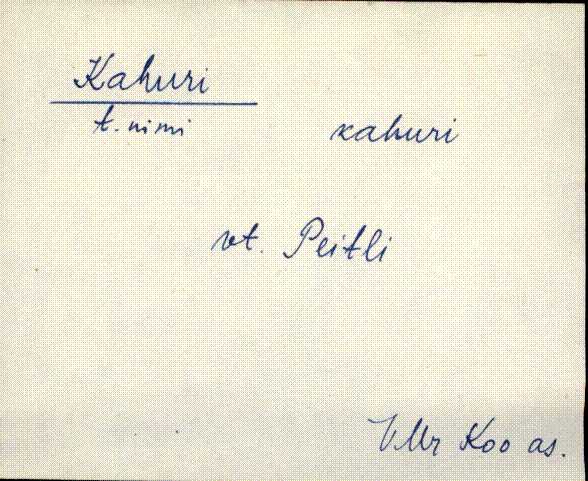 Kahuri
t. nimi kahuri
vt. Peitli
VMr Koo as.